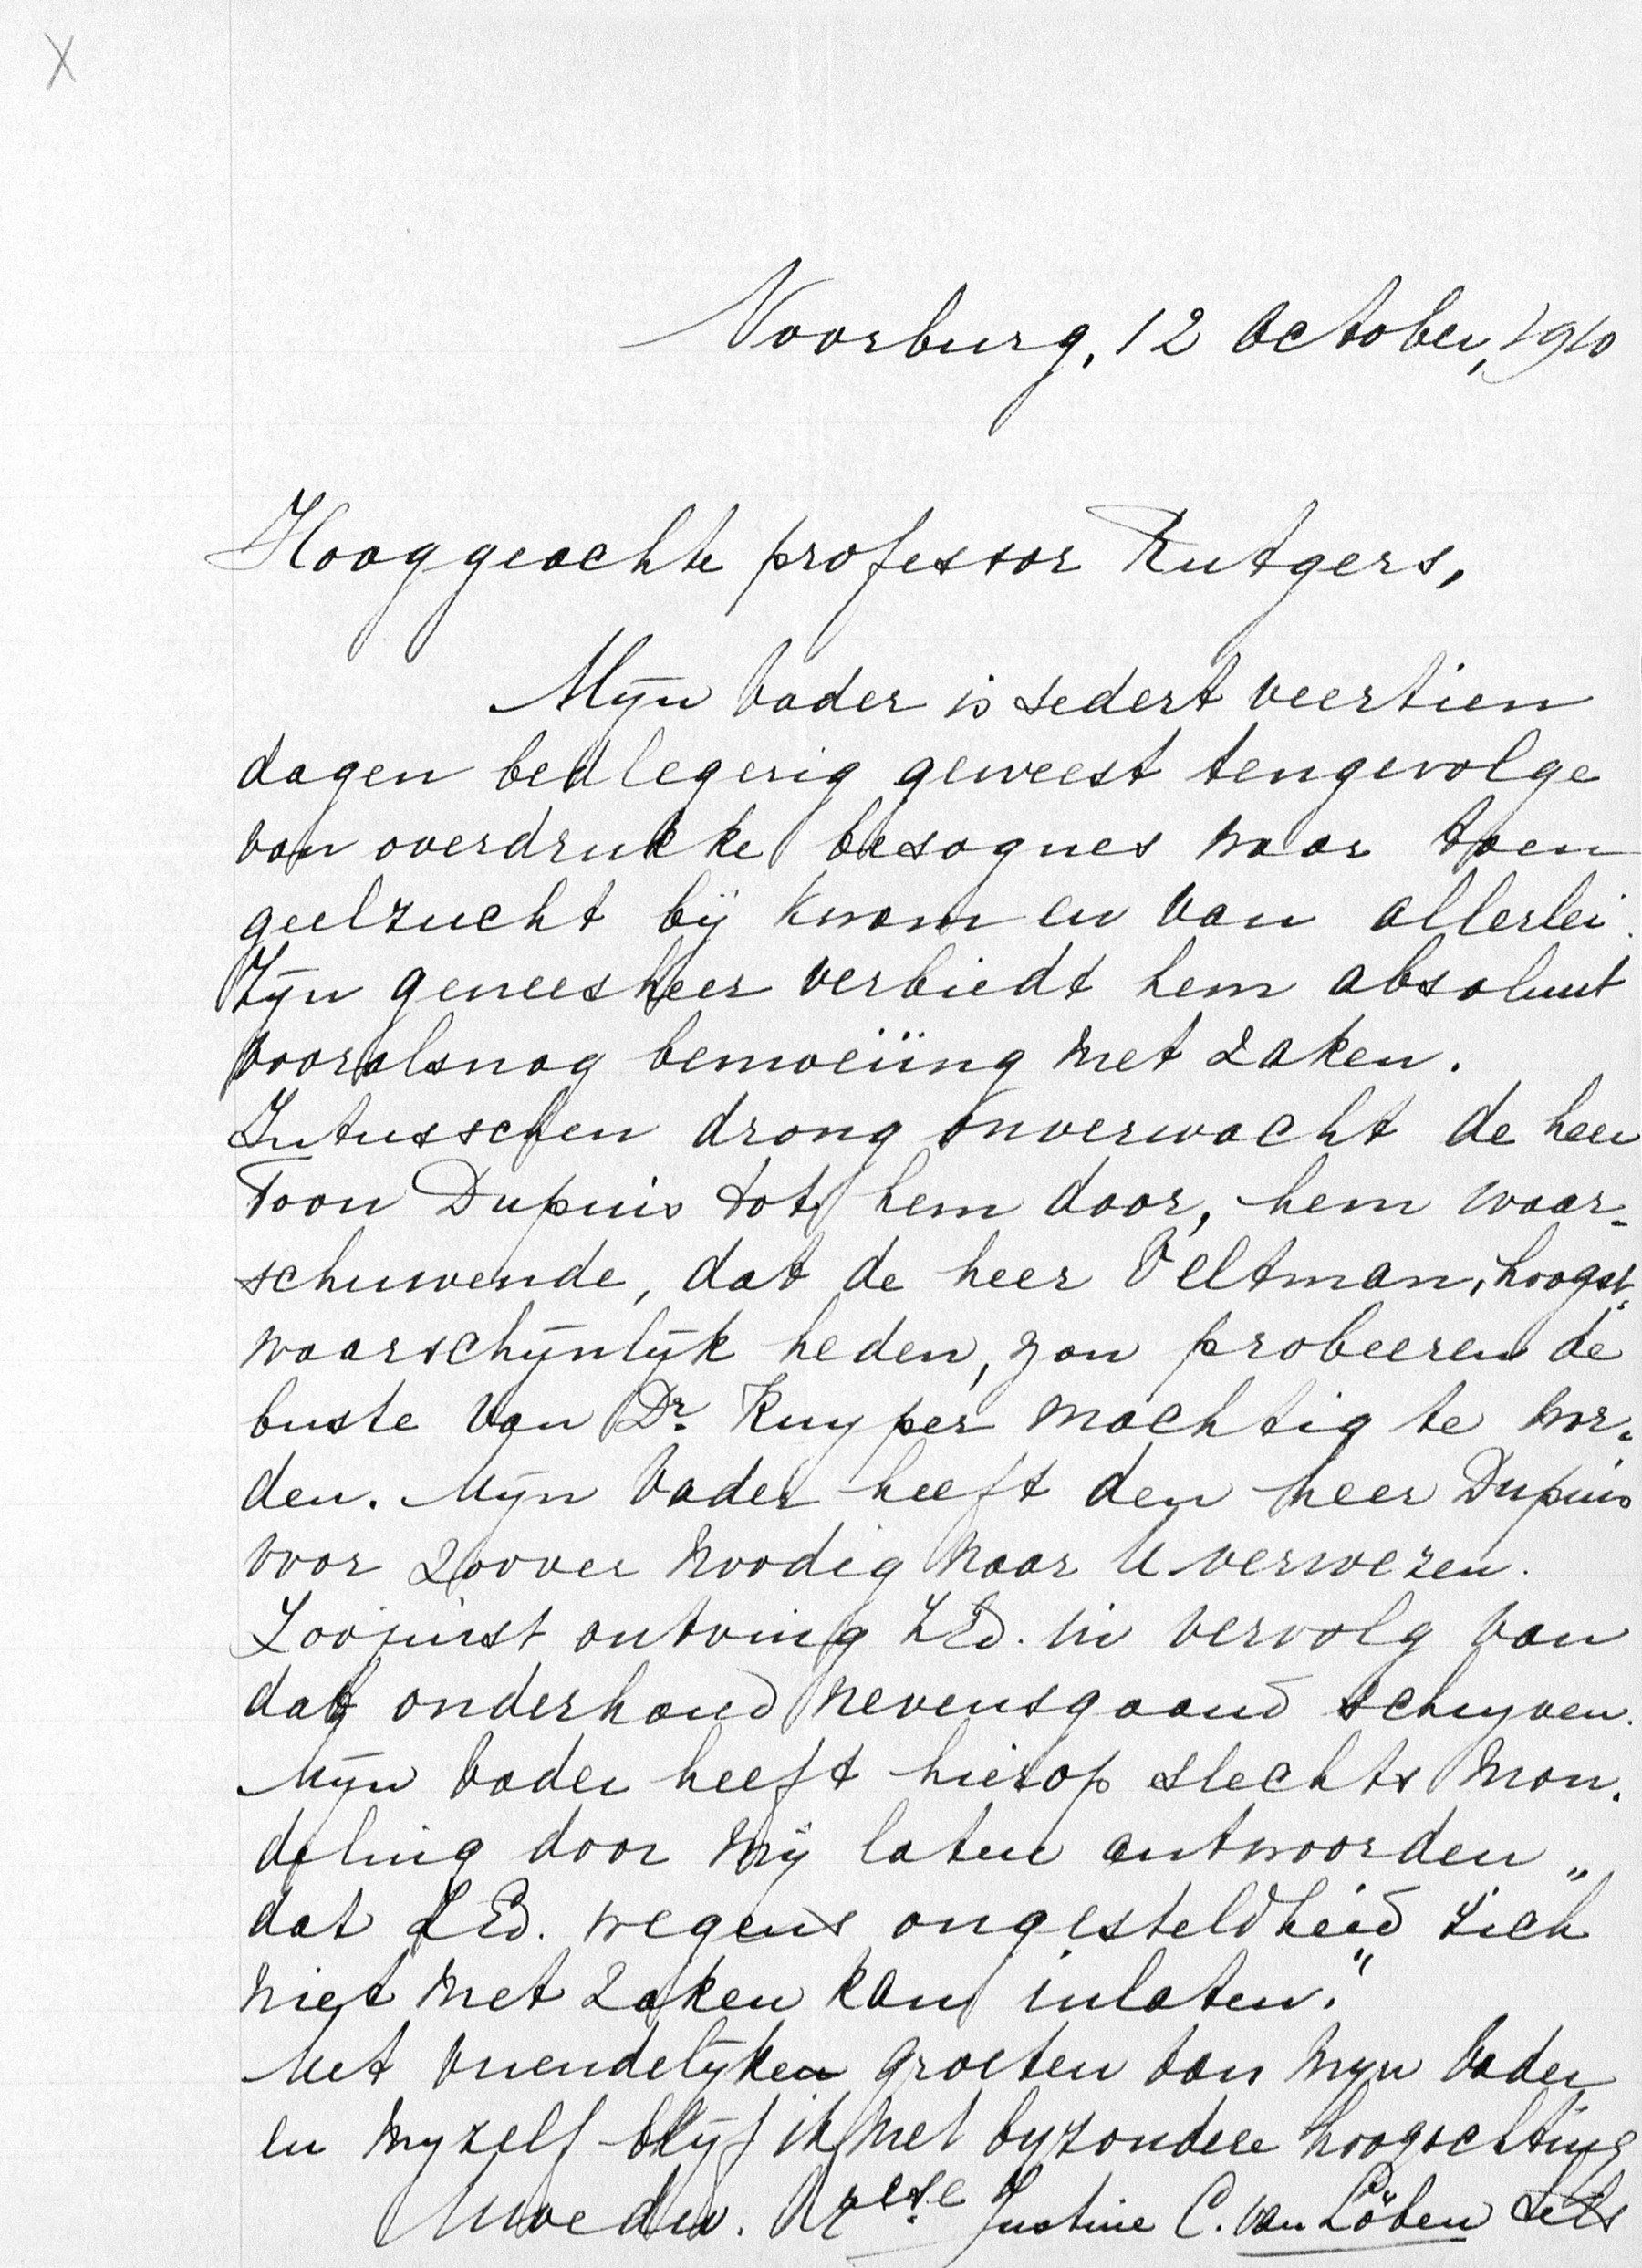 X
Voorburg, 12 October, 1910
Hooggeachte professor Rutgers,
Mijn Vader is sedert veertien
dagen bedlegerig geweest tengevolge
van overdrukke besognes waar toen
geelzucht bij kwam en van allerlei.
Zijn geneesheer verbiedt hem absoluut
vooralsnog bemoeiïng met zaken.
Intusschen drong onverwacht de heer
Toon Dupuis tot hem door, hem waar-
schuwende, dat de heer Veltman, hoogst-
waarschijnlijk heden, zou probeeren de
buste van Dr. Kuyper machtig te wor-
den. Mijn Vader heeft den heer Dupuis
voor zoover noodig naar U verwezen.
Zoojuist ontving ZEd. in vervolg van
dat onderhoud nevensgaand schrijven.
Mijn Vader heeft hierop slechts mon-
deling door mij laten antwoorden „
dat ZEd. wegens ongesteldheid zich
niet met zaken kan inlaten."
Met vriendelijken groeten van mijn Vader
en mijzelf blijf ik met byzondere hoogachting
Uwe dw. Justine C. van Löben Sels